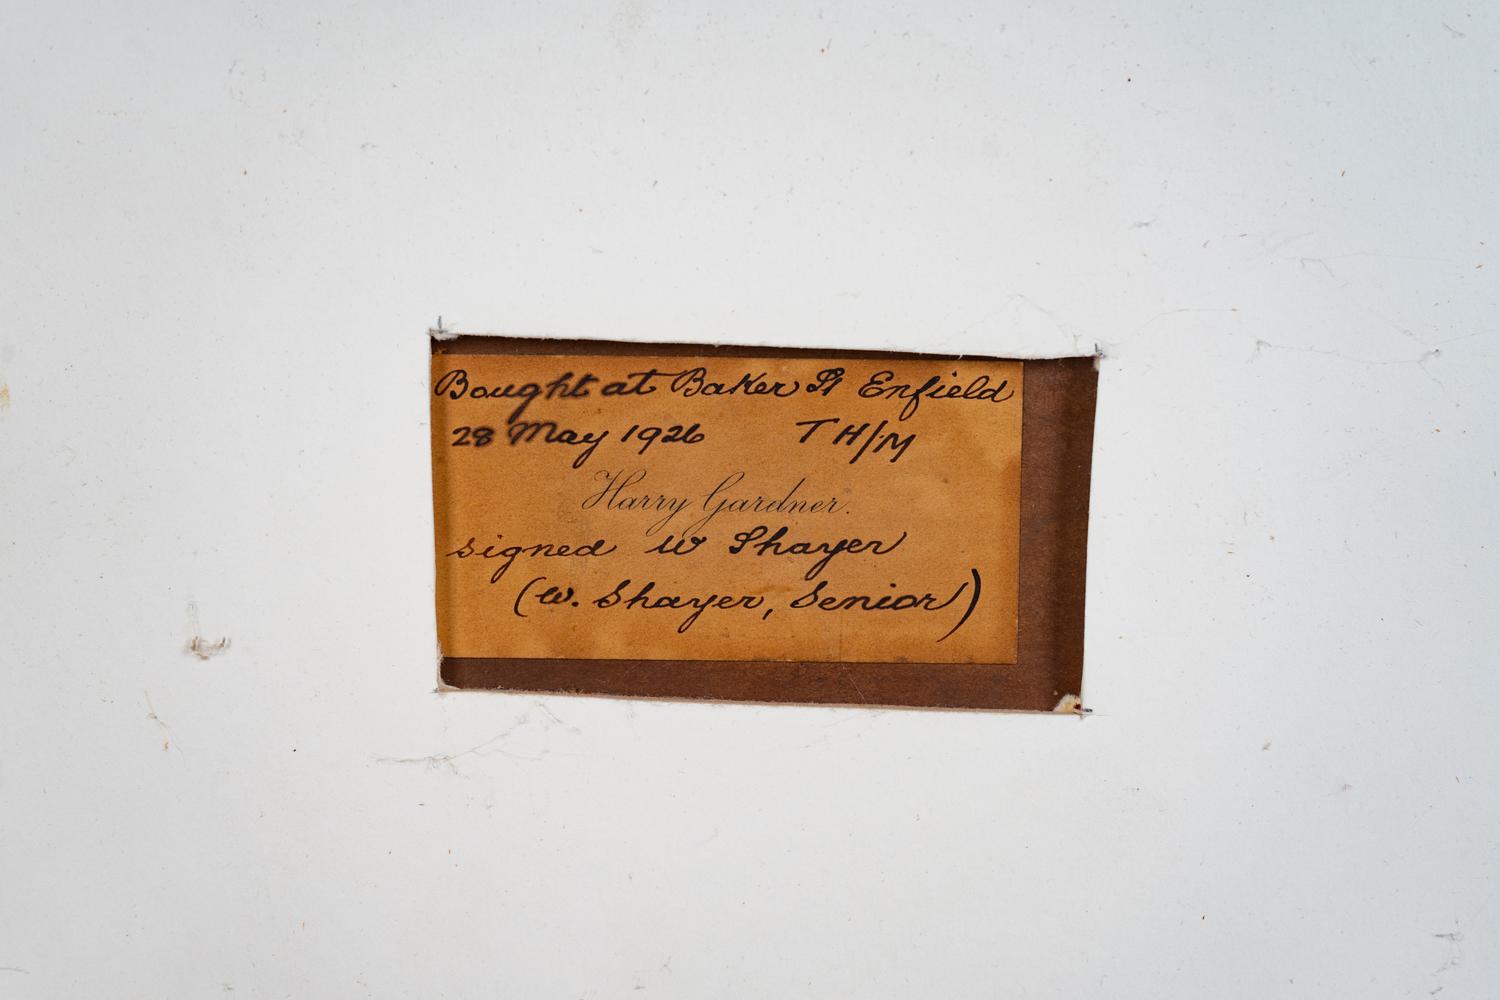 Bought at Baker St Enfield
28 May 1926 TH/M
Harry Gardner.
signed W Shayer
(W. Shayer, Senior)